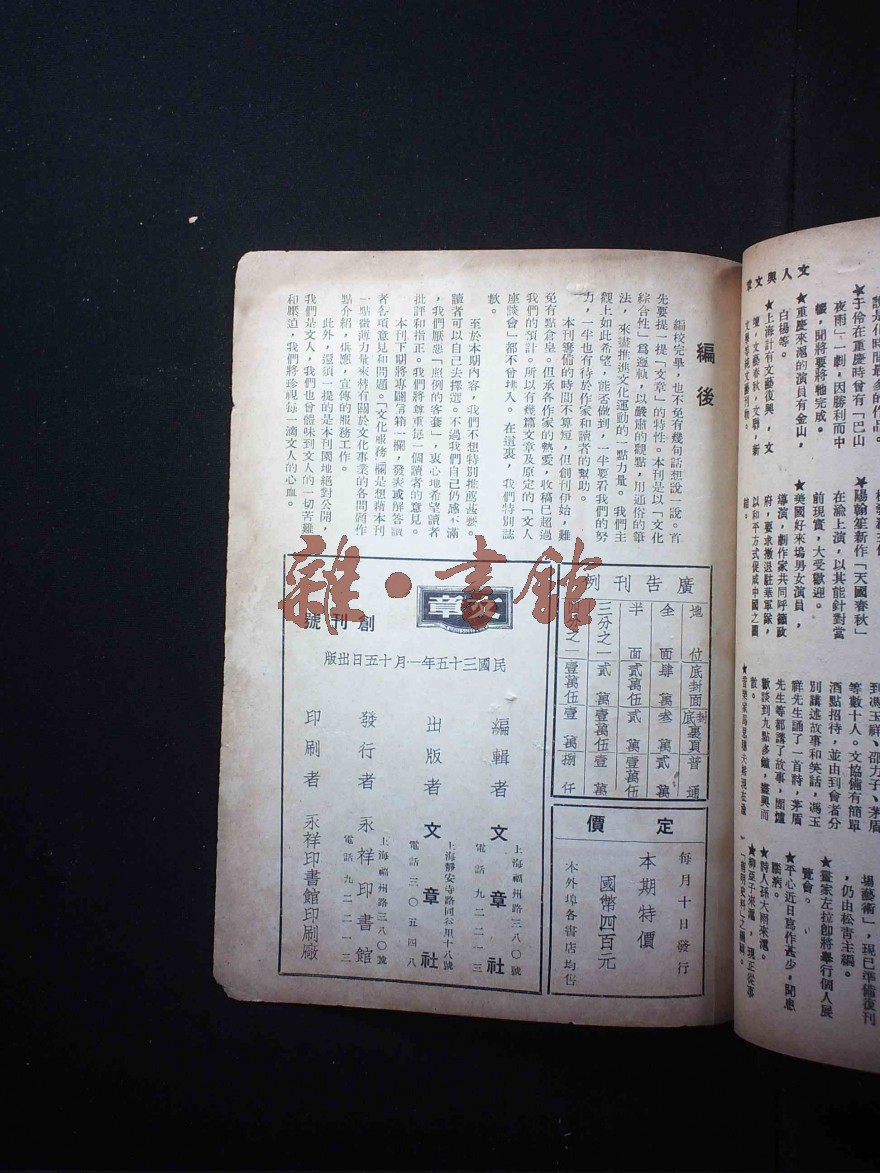 編後
編校完畢，也不免有幾句話想說一說。首
先要提一提「文章」的特性。本刊是以「文化
綜合性」爲邏軌，以嚴肅的觀點，用通俗的筆
法，來盡推進文化運動的一點力量。我們主
觀上如此希望，能否做到，一半要看我們的努
力，一半也有待於作家和讀者的幫助。
本刊籌備的時間不算短，但創刊伊始，難
免有點倉皇。但承各作家的熱愛，收稿已超過
我們的預計。所以有幾篇文章及原定的「文人
座談會」都不曾排入。在這裏，我們特別誌
歉。
至於本期內容，我們不想特別推薦甚麽。
讀者可以自己去擇選。不過我們自己仍感不滿
，我們厭惡「照例的客套」，衷心地希望讀者
批評和指正。我們將尊重每一個讀者的意見。
本刊下期將專闢信箱一欄，發表或解答讀
者各項意見和問題。「文化服務」欄是想藉本刊
一點微薄力量來替有關於文化事業的各問題作
點介紹，供應，宣傳的服務工作。
此外，還須一提的是本刊園地絕對公開，
我們是文人，我們也曾體味到文人的一切苦難
和壓迫，我們將珍視每一滴文人的心血。
廣告刊例
地位 底封面 封底裏頁 普通
全面 肆萬 叁萬 貳萬
半面 貳萬伍 貳萬 壹萬伍
三分之一 貳萬 壹萬伍 壹萬
四分之一 壹萬伍 壹萬 捌仟
定價
每月十日發行
本期特價
國幣四百元
本外埠各書店均售
文章
創刊號
民國三十五年一月十五日出版
編輯者 文章社
上海福州路三八〇號
電話 九二二一三
出版者 文章社
上海靜安寺路同和里十八號
電話 三〇五四八
發行者 永祥印書館
上海福州路三八〇號
電話 九二二一三
印刷者 永祥印書館印刷廠
雜·書館
文人與文章
說是佔時間最多的作品。
★于伶在重慶時曾有「巴山
夜雨」一劇，因勝利而中
輟，聞將要將牠完成。
★重慶來滬的演員有金山，
白楊等。
★上海計有文藝復興，文
壇，文藝春秋，文聯，新
文學等純文藝刊物。
陽翰笙新作「天國春秋」
在渝上演，以其能針對當
前現實，大受歡迎。
★美國好來塢男女演員，
導演，劇作家共同呼籲政
府，要求撤退駐華軍隊，
以和平方式促成中國之團
結。
到馮玉祥、邵力子、茅盾
等數十人。文協備有簡單
酒點招待，並由到會者分
別講述故事和笑話，馮玉
祥先生誦了一首詩，茅盾
先生等都講了故事，圍爐
歡談到九點多鐘，盡興而
散。
★音樂家馬思聰夫婦現在渝
場藝術」，現已準備復刊
，仍由松青主編。
★畫家左拉即將舉行個人展
覽會。
★平心近日寫作甚少，聞患
腦病。
★詩人孫大雨來滬。
★柳亞子來滬，現正從事
「南明史料」之編輯。